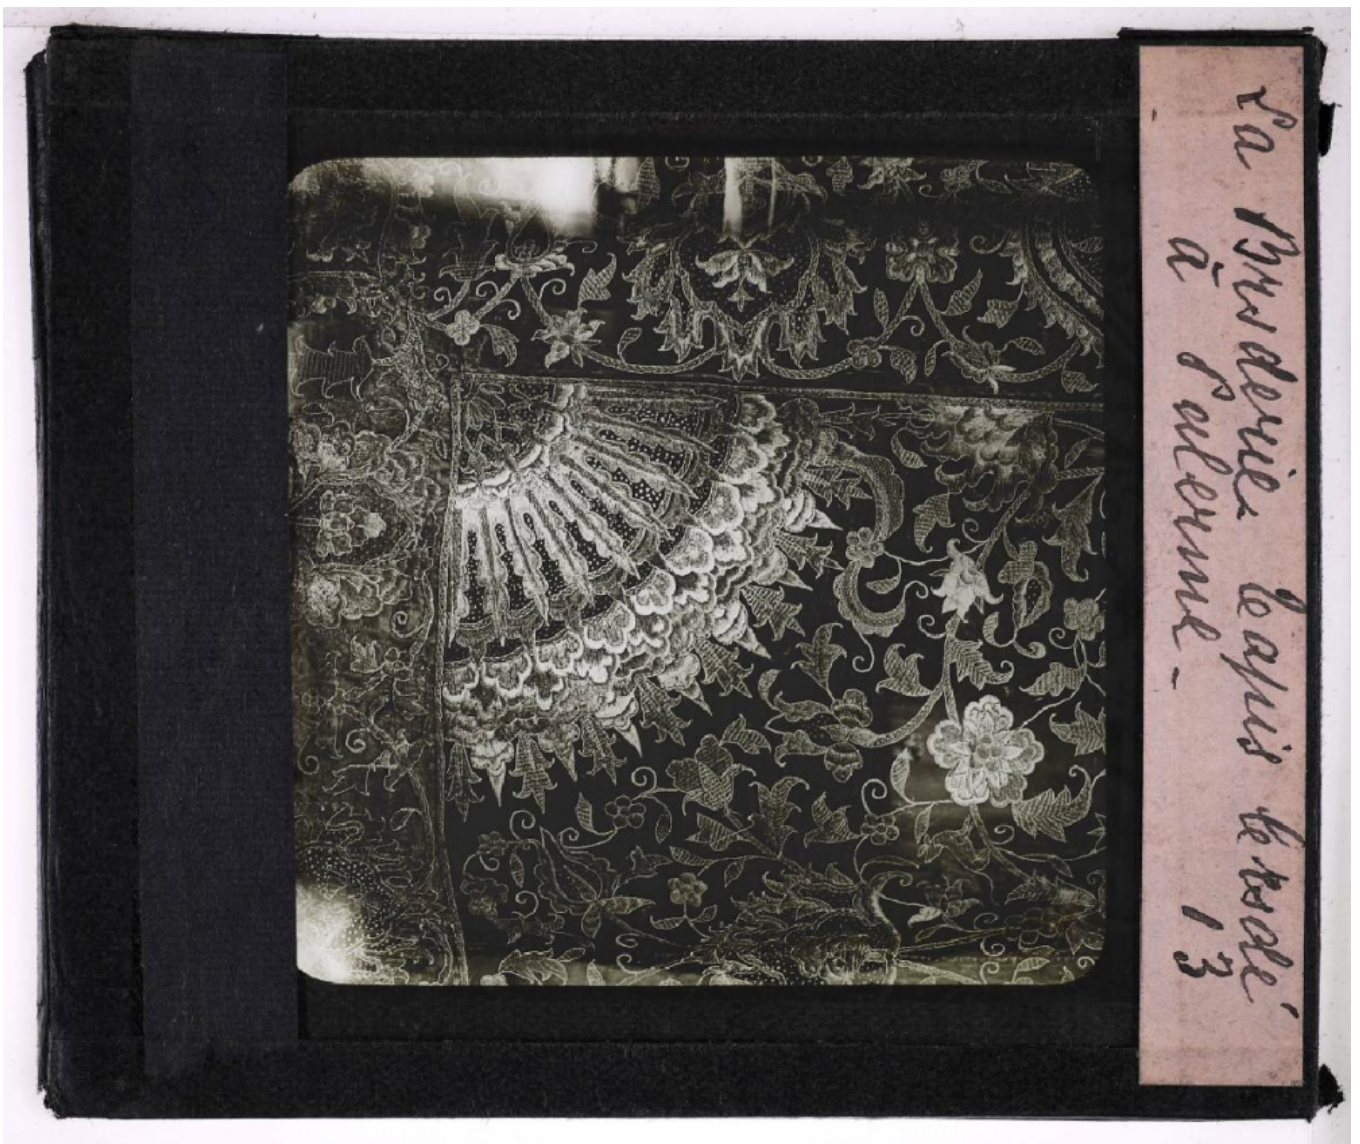 La Broderie tapis brodé
à Palerme -
13